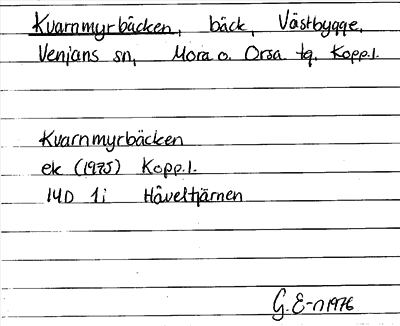 Kvarnmyrbäcken, bäck, Västbygge,
Venjans sn, Mora o. Orsa tg. Kopp.l.
Kvarnmyrbäcken
ek (1975) Kopp.l.
14D 1i Håveltjärnen
G. E-n 1976